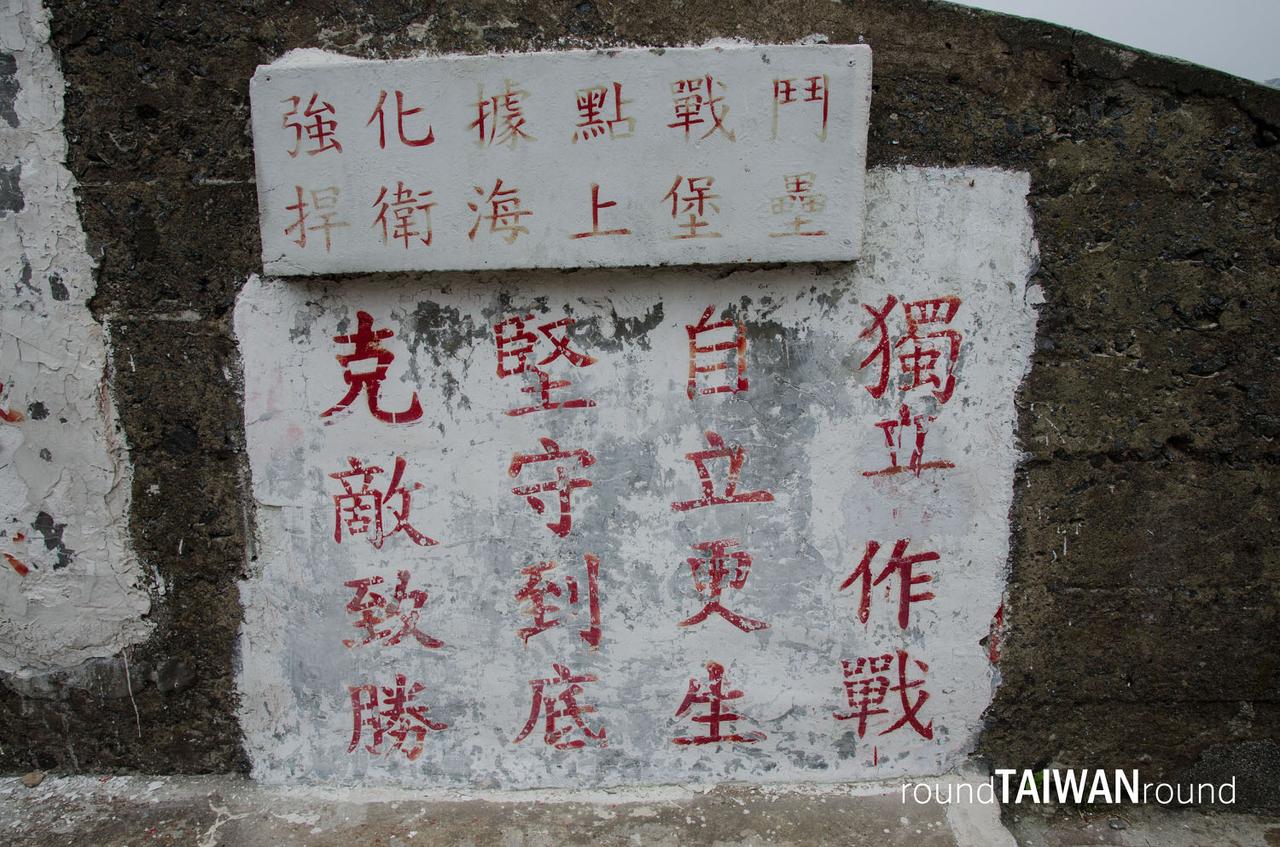 強化據點戰鬥
捍衛海上堡壘
獨立作戰
自立更生
堅守到底
克敵致勝
roundTAIWANround